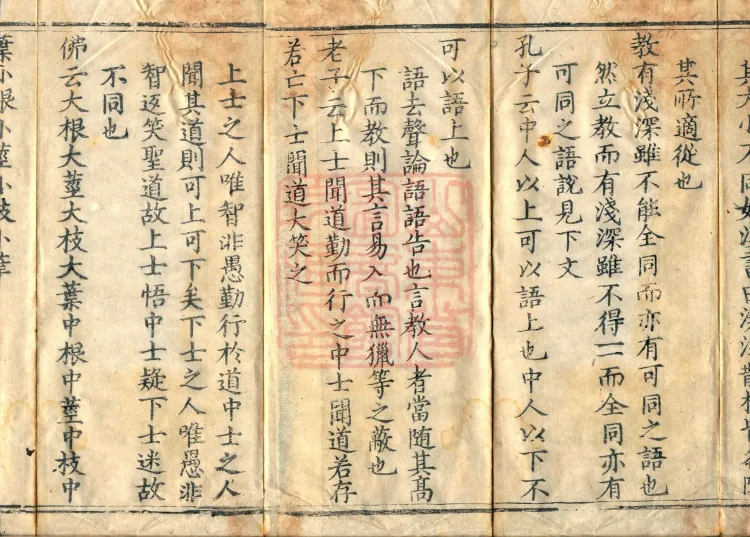 其大小不同如
其所適從也
教有淺深雖不能全同而亦有可同之語也
然立教而有淺深雖不得一一而全同亦有
可同之語說見下文
孔子云中人以上可以語上也中人以下不
可以語上也
語去聲論語語告也言教人者當随其髙
下而教則其言易入而無獵等之蔽也
老子云上士聞道勤而行之中士聞道若存
若亡下士聞道大笑之
上士之人唯智非愚勤行於道中士之人
聞其道則可上可下矣下士之人唯愚非
智返笑聖道故上士悟中士疑下士迷故
不同也
佛云大根大莖大枝大葉中根中莖中枝中
葉小根小莖小枝小葉